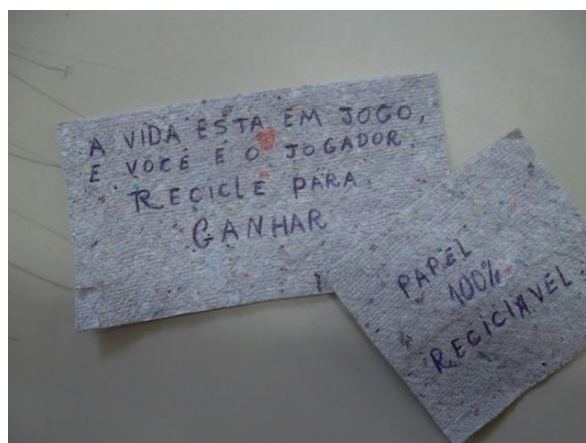 A VIDA ESTA EM JOGO,
E VOCÊ É O JOGADOR.
RECICLE PARA
GANHAR
PAPEL
100%
RECICIAVEL